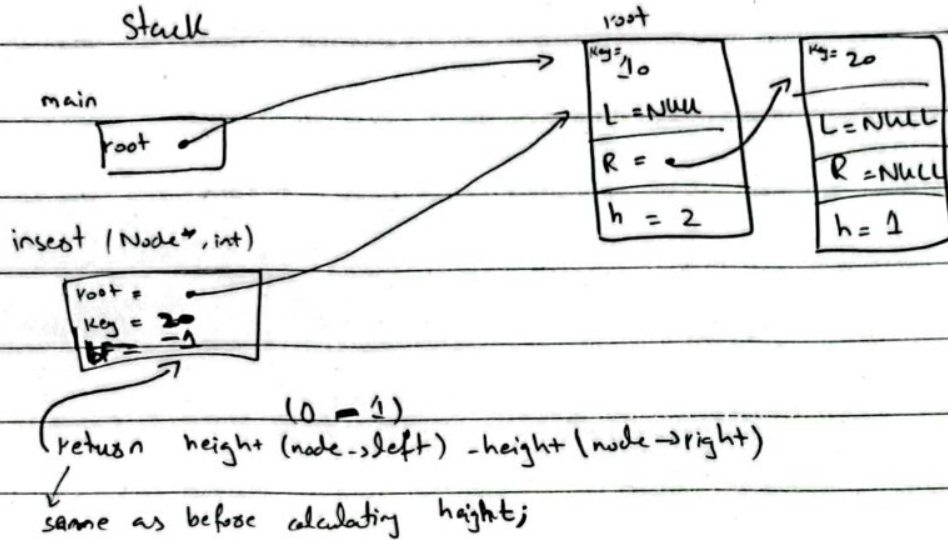 Stack
root
main
root
Key= 10
L = NULL
R =
h = 2
Key= 20
L = NULL
R = NULL
h = 1
insert (Node*, int)
root =
Key = 20
bf = -1
(0 - 1)
return height (node->left) - height (node->right)
same as before calculating height;